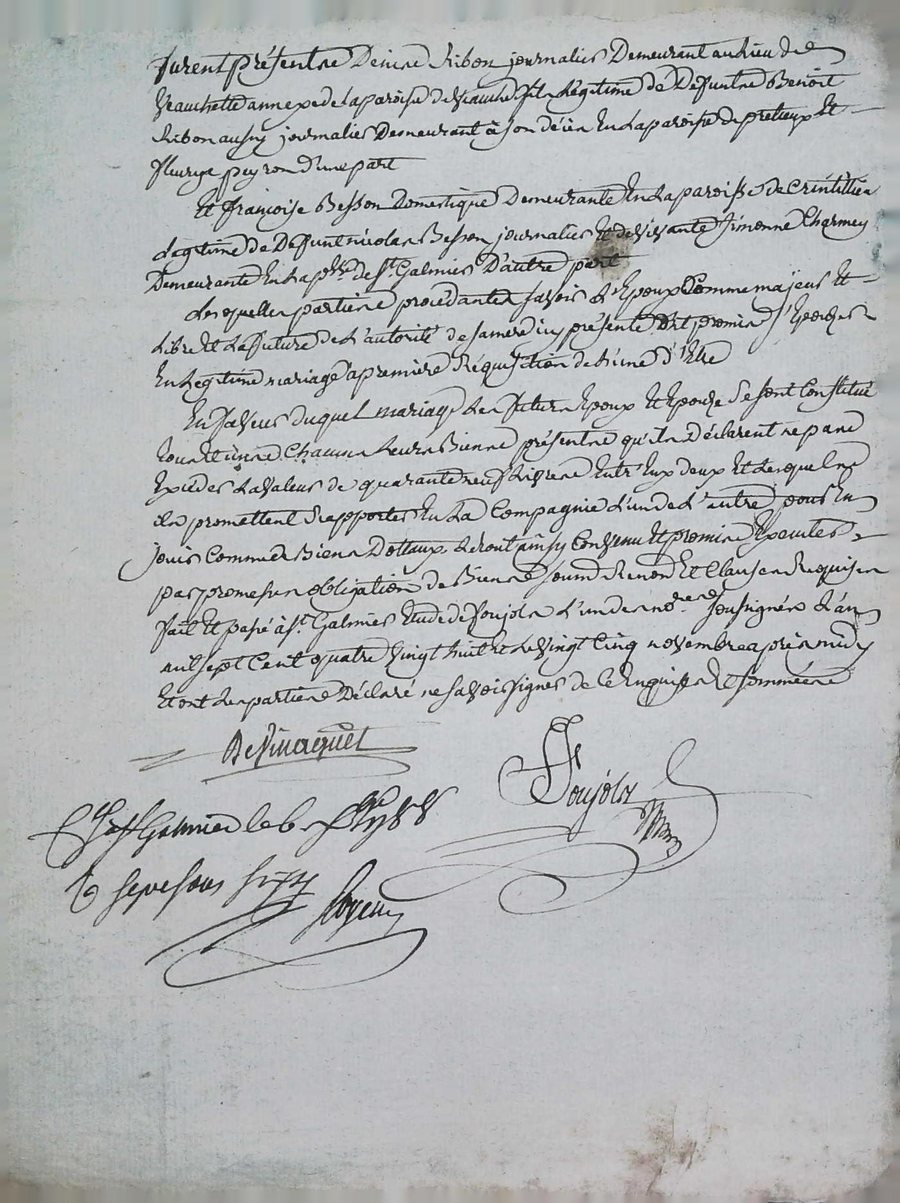 furent présentre Denine Ribon journalier Demeurant au lieu de
Veauchette annexe de la paroisse de Veauche fils Légitime de Deffuntre Benoit
Ribon aussy journalier Demeurant à son décèn En la paroisse de pretieux Et
fleurye peyron d'une part
Et françoise Besson Domestique Demeurante En la paroisse de Crintillien
Légitime de Deffunt nicolas Besson journalier Et de vivante Simonne Charmey
Demeurante En la psse de St Galmier D'autre part
Lesquelles partiene procédanter savoir L'Epoux Comme majeur Et
Libre Et La future de L'autorité de sa mere icy présente ont promis s'Epouser
En Legitime mariage a premiere Réquisition de L'une d'Elle
En faveur duquel mariage Les futurs Epoux Et Epouze se sont Constitué
tour Et une Chacun Leurs Bienne présentre qu'ils déclarent ne pane
Excéder La valeur de quarante neuf Livrene Entr'Eux deux Et Lesquelne
ils promettent d'apporter En La Compagnie L'un de L'autre pour En
jouir Comme Biens Dottaux Le tout ainsy Convenu Et promis Executer
par promessen obligation de Biene soumd Renond Et Clausen Requisen
fait Et passé à St Galmier Etude de Soujols L'un de nore soussignés L'an
mil sept Cent quatre vingt huit Et Le vingt Cinq novembre après midy
Et ont Les partiene Déclaré ne savoir signer de Ce Enquisen Et sommeene
Devincquet
Soujols
C. à St Galmier le 6 Xbre 1788